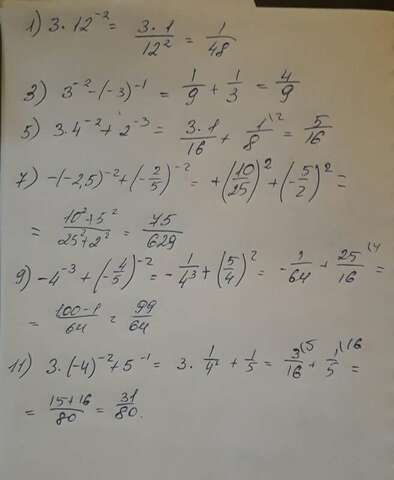 1) 3·12⁻² = 3·1/12² = 1/48
3) 3⁻² - (-3)⁻¹ = 1/9 + 1/3 = 4/9
5) 3·4⁻² + 2⁻³ = 3·1/16 + 1\²/8 = 5/16
7) -(-2,5)⁻² + (-2/5)⁻² = +(10/25)² + (-5/2)² =
= 10²+5²/25²+2² = 75/629
9) -4⁻³ + (-4/5)⁻² = -1/4³ + (5/4)² = -1/64 + 25\⁴/16 =
= 100-1/64 = 99/64
11) 3·(-4)⁻² + 5⁻¹ = 3·1/4² + 1/5 = 3\⁵/16 + 1\¹⁶/5 =
= 15+16/80 = 31/80.